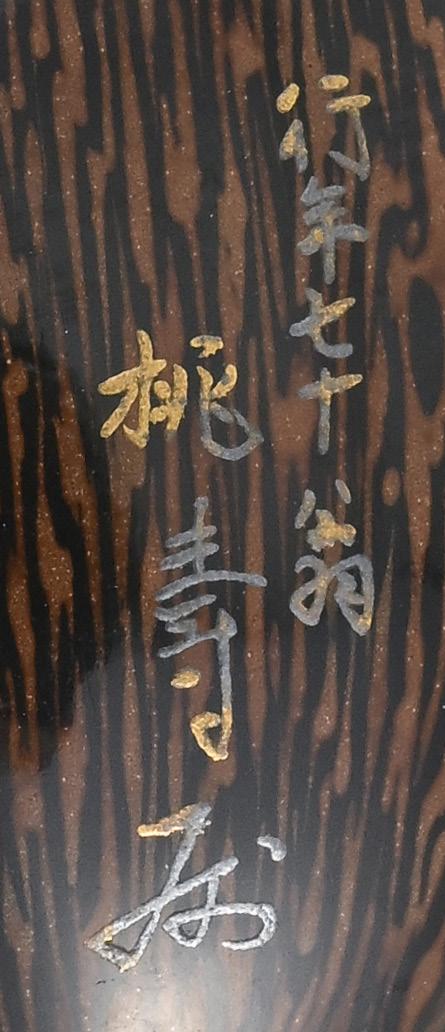 行年七十翁
桃寿